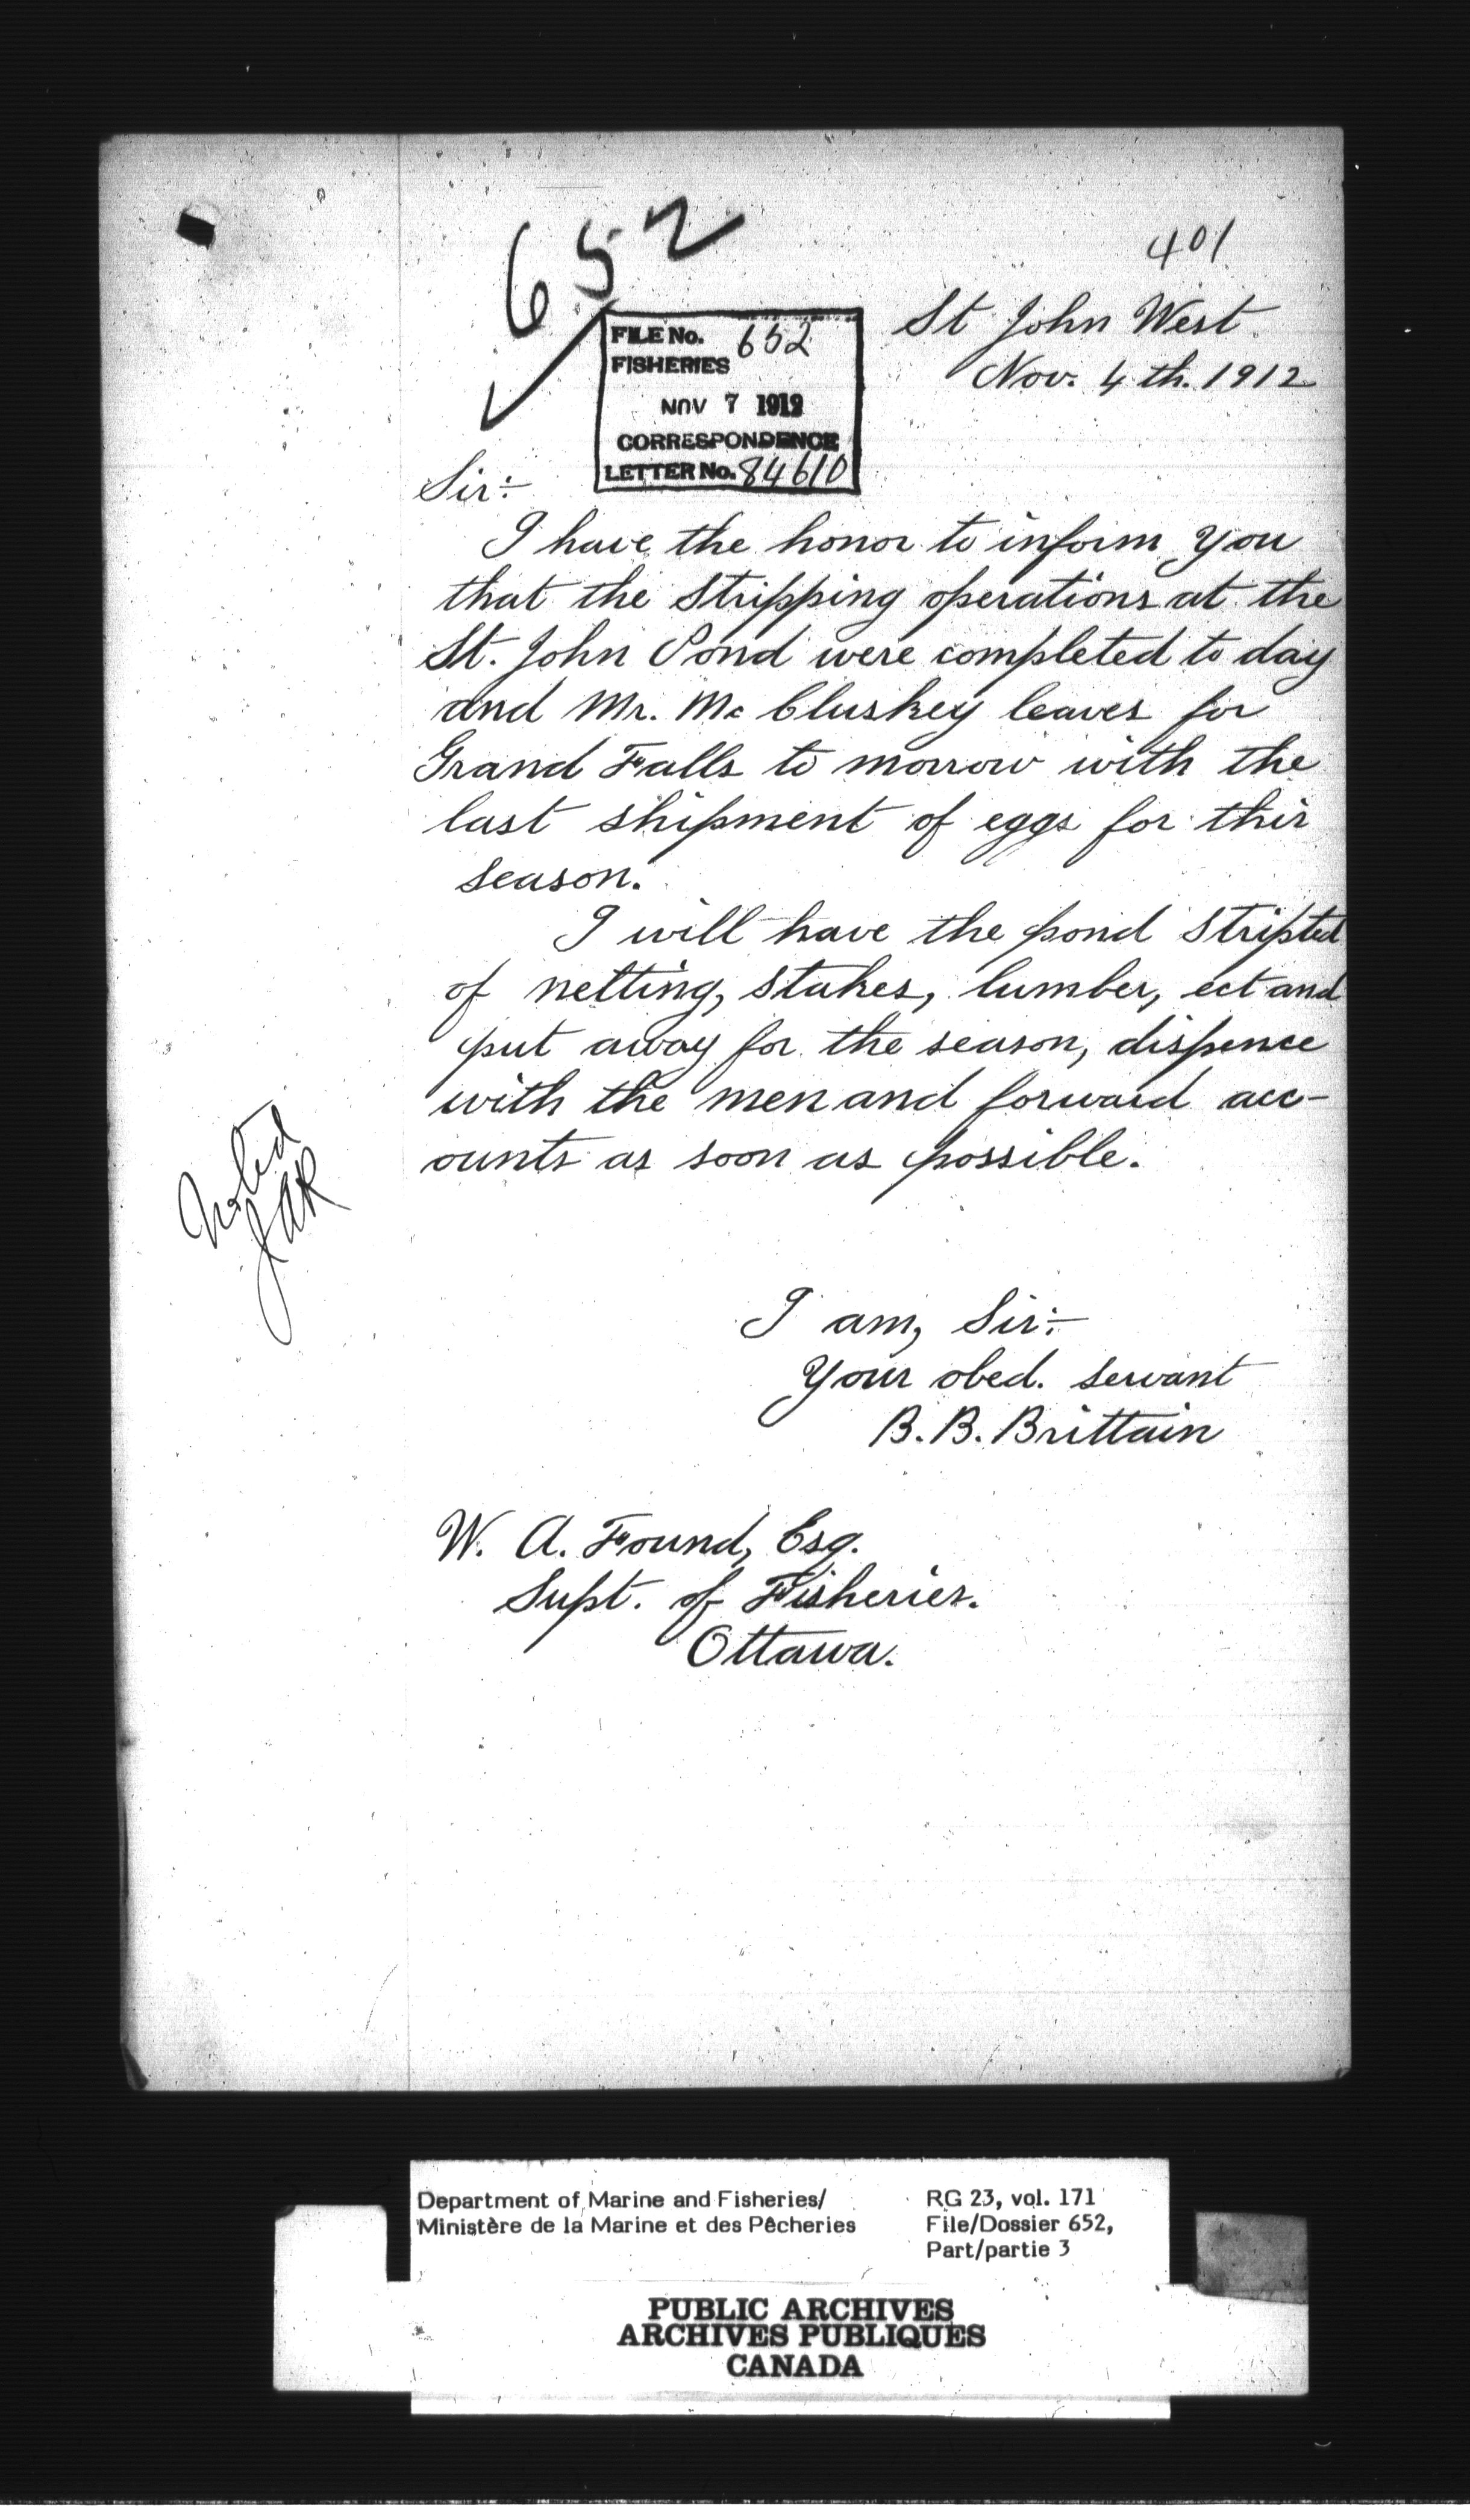 652
401
St John West
Nov. 4th. 1912
FILE No. 652
FISHERIES
NOV 7 1912
CORRESPONDENCE
LETTER No. 84610
Sir:-
I have the honor to inform you
that the stripping operations at the
St. John Pond were completed to day
and Mr. McCluskey leaves for
Grand Falls to morrow with the
last shipment of eggs for this
season.
I will have the pond stripted
of netting, stakes, lumber, ect and
put away for the season, dispence
with the men and forward acc-
ounts as soon as possible.
Noted
JAR
I am, Sir:-
Your obed. servant
B. B. Brittain
W. A. Found, Esq.
Supt. of Fisheries.
Ottawa.
Department of Marine and Fisheries/
Ministère de la Marine et des Pêcheries
RG 23, vol. 171
File/Dossier 652,
Part/partie 3
PUBLIC ARCHIVES
ARCHIVES PUBLIQUES
CANADA